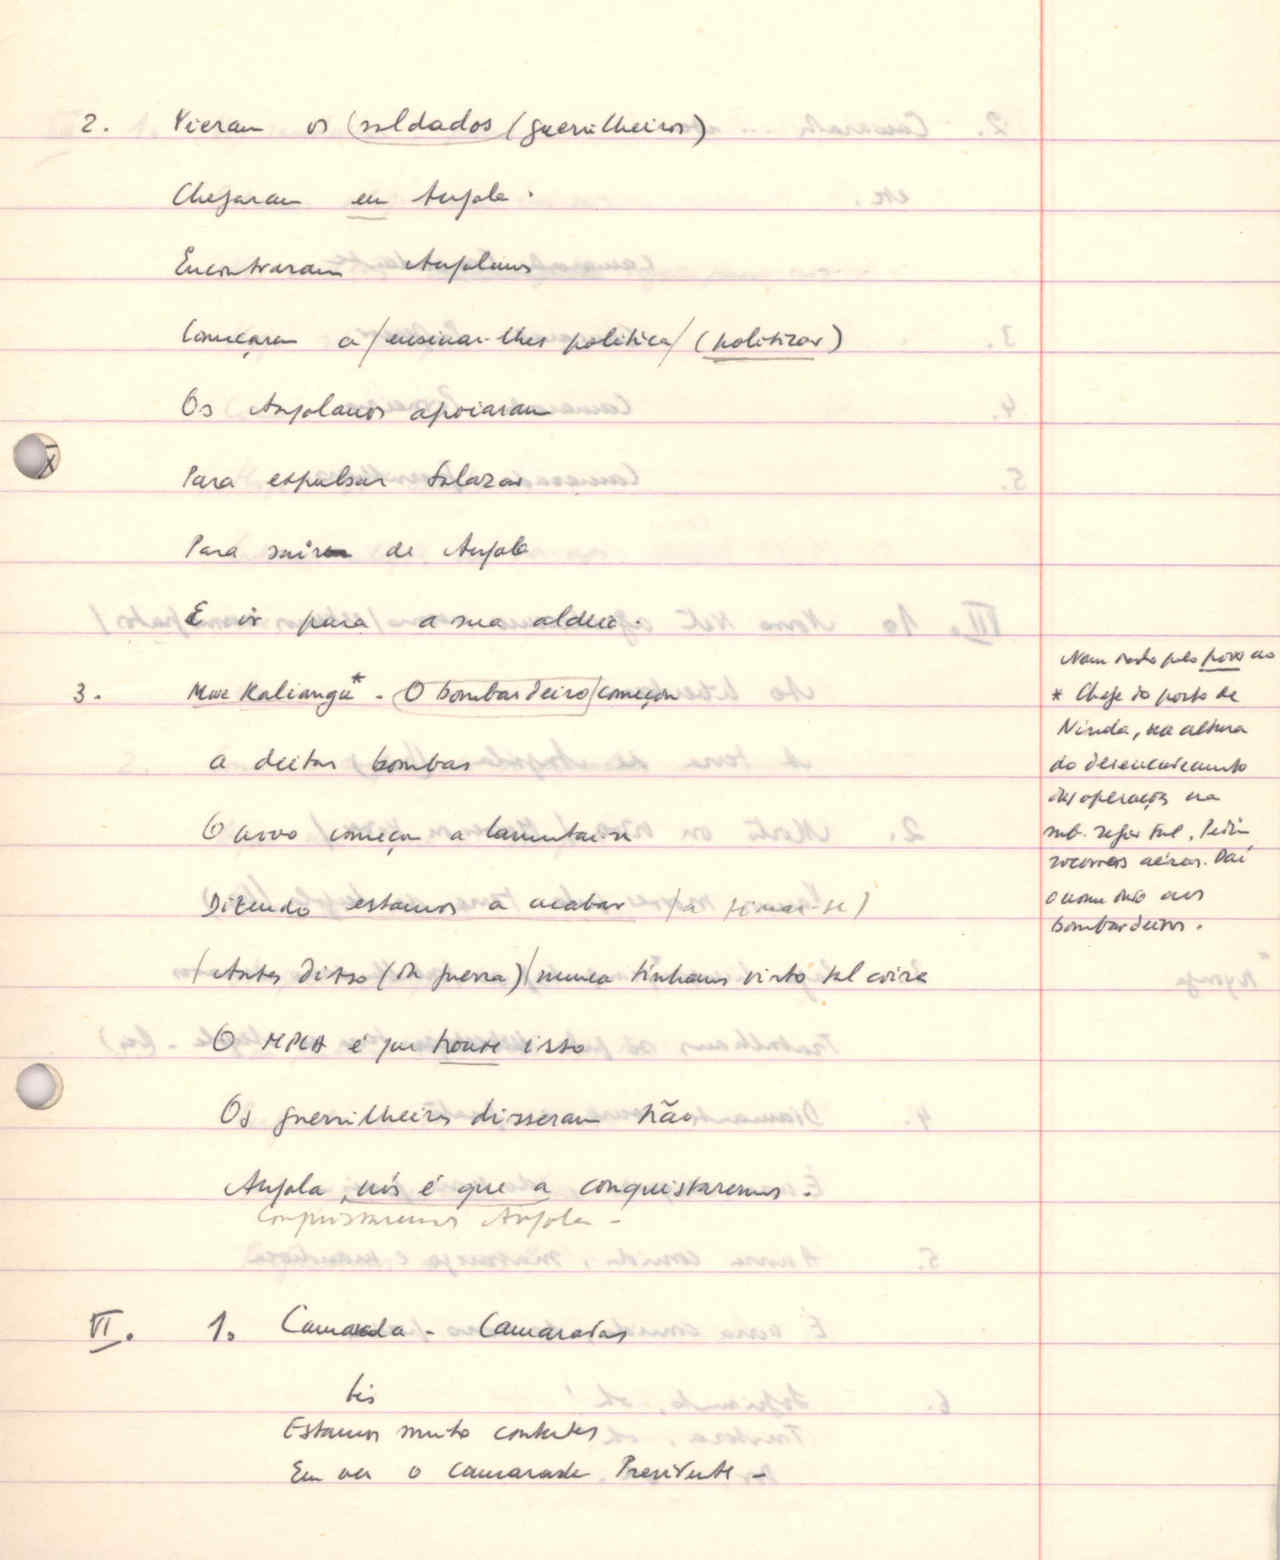 2. Vieram os (soldados (guerrilheiros)
Chegaram em Angola.
Encontraram Angolanos
Começaram a /ensinar-lhes política/ (politizar)
Os Angolanos apoiaram
Para expulsar Salazar
Para sair de Angola
E ir para a sua aldeia.
3. Mwe Kalianga* - O bombardeiro/começou
a deitar bombas
O povo começou a lamentar-se
Dizendo estamos a acabar (a
(Antes disso (da guerra)/nunca tínhamos visto tal coisa
O MPLA é que trouxe isso
Os guerrilheiros disseram não
Angola, nós é que a conquistaremos.
Conquistaremos Angola -
VI. 1. Camarada - Camaradas
bis
Estamos muito contentes
Em ver o camarada Presidente -
Nome dado pelo povo ao
* Chefe do posto de
Ninda, na altura
do desencadeamento
das operações na
sub-região Sul. Pedia
socorros aéreos. Daí
o nome dado aos
bombardeiros.